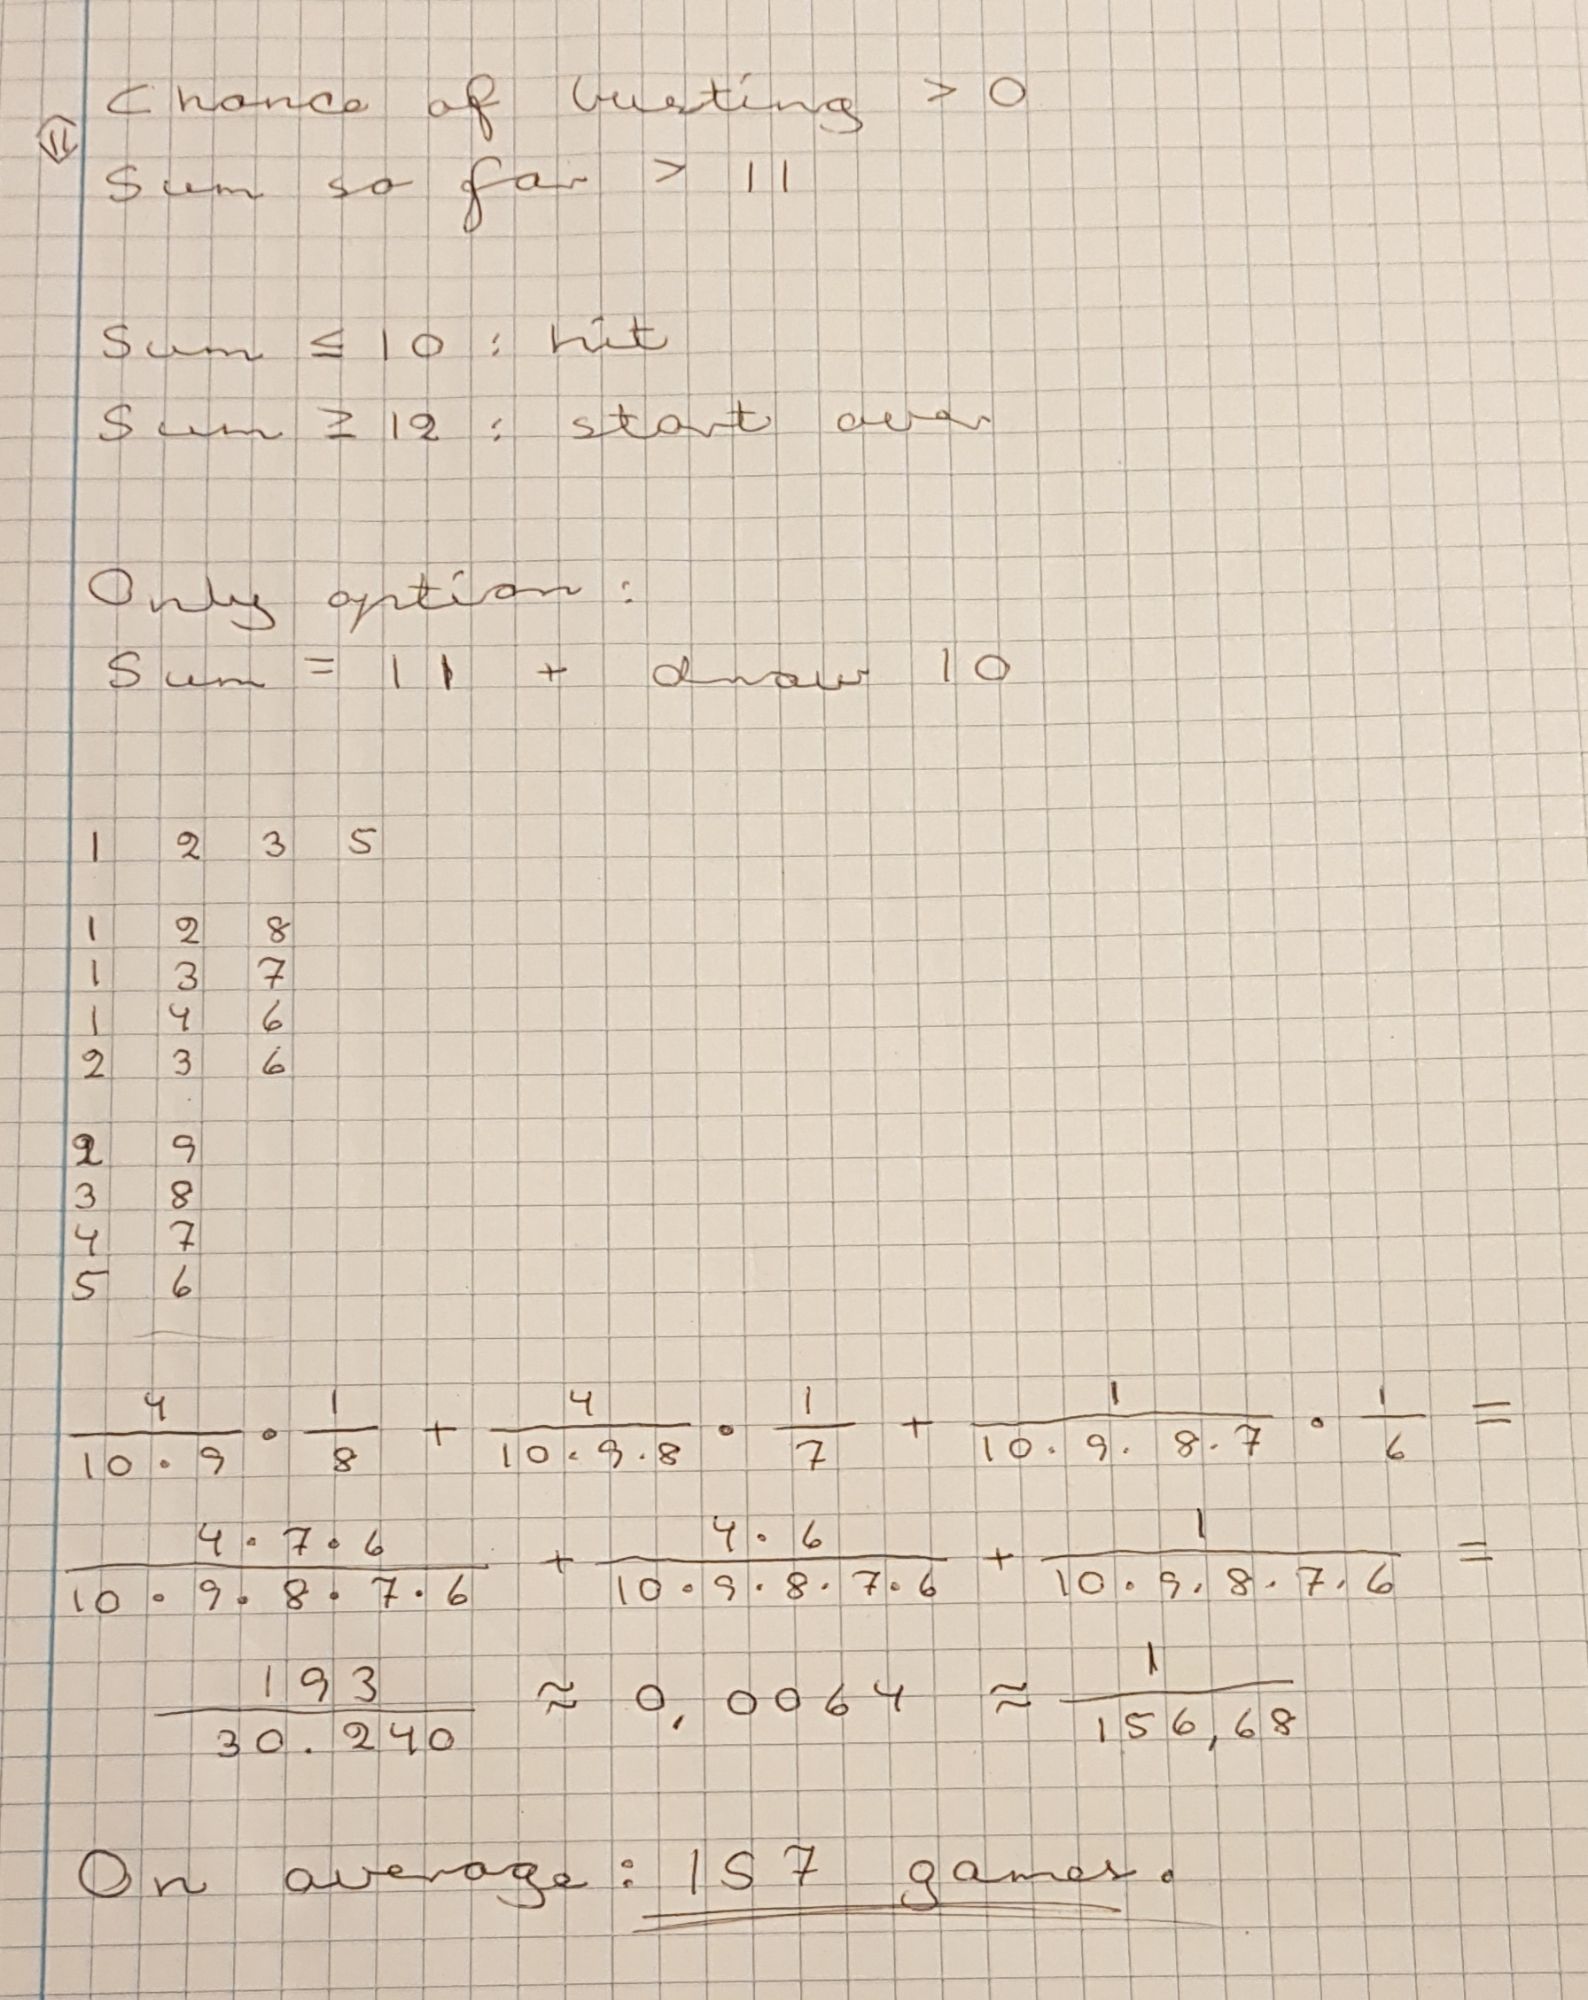 Chance of busting > 0
⇕
Sum so far > 11
Sum ≤ 10 : hit
Sum ≥ 12 : start over
Only option :
Sum = 11 + draw 10
1 2 3 5
1 2 8
1 3 7
1 4 6
2 3 6
2 9
3 8
4 7
5 6
4/(10·9) · 1/8 + 4/(10·9·8) · 1/7 + 1/(10·9·8·7) · 1/6 =
(4·7·6)/(10·9·8·7·6) + (4·6)/(10·9·8·7·6) + 1/(10·9·8·7·6) =
193/30.240 ≈ 0,0064 ≈ 1/156,68
On average : 157 games.